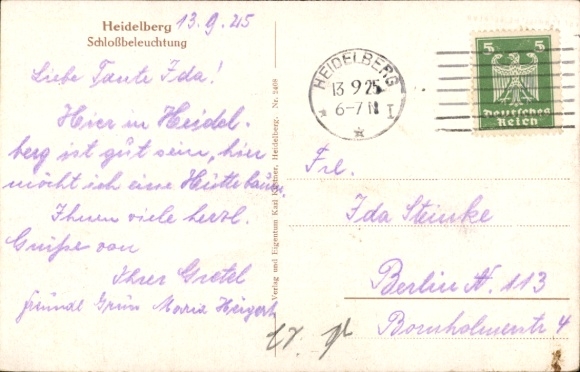 Heidelberg 13.9.25
Schloßbeleuchtung
Liebe Tante Ida!
Hier in Heidel-
berg ist gut sein, hier
möcht ich eine Hütte bauen.
Ihnen viele herzl.
Grüße von
Ihrer Gretel
freundl Gruß Maria
Verlag und Eigentum Karl Kästner, Heidelberg. Nr. 5408
HEIDELBERG
13 9 25
6-7 N
* * I
5 5
Deutsches
Reich
Frl.
Ida Steinke
Berlin N. 113
Bornholmerstr 4